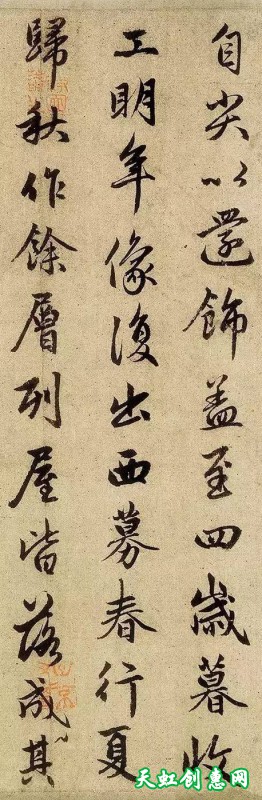 自尖以還飾盖至四歲暮收
工明年像復出西募春行夏
歸秋作餘層列屋皆落成其
天虹创惠网